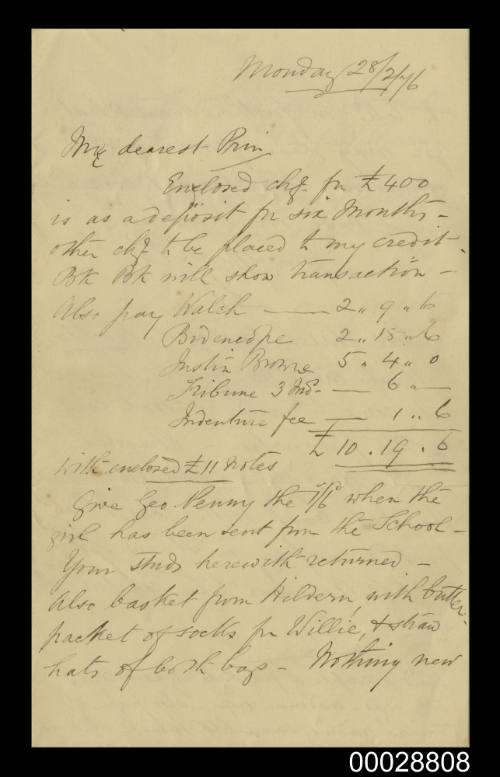 Monday 28/2/76
My dearest Prin
Enclosed chq. for £400
is as a deposit for six Months -
other chq to be placed to my credit.
Bk Bk will show transaction -
Also pay Walch — 2 " 9 " 6
2 " 15 " 6
Justin Browne 5 " 4 " 0
Tribune 3 Mos. — 6 " —
Indenture fee — 1 " 6
£ 10 . 19 . 6
with enclosed £11 notes
Give Geo Penny the 1/6 when the
girl has been sent from the School -
Your studs herewith returned -
Also basket from Hildern, with butter.
packet of socks for Willie, & straw
hats of both boys - Nothing new
00028808